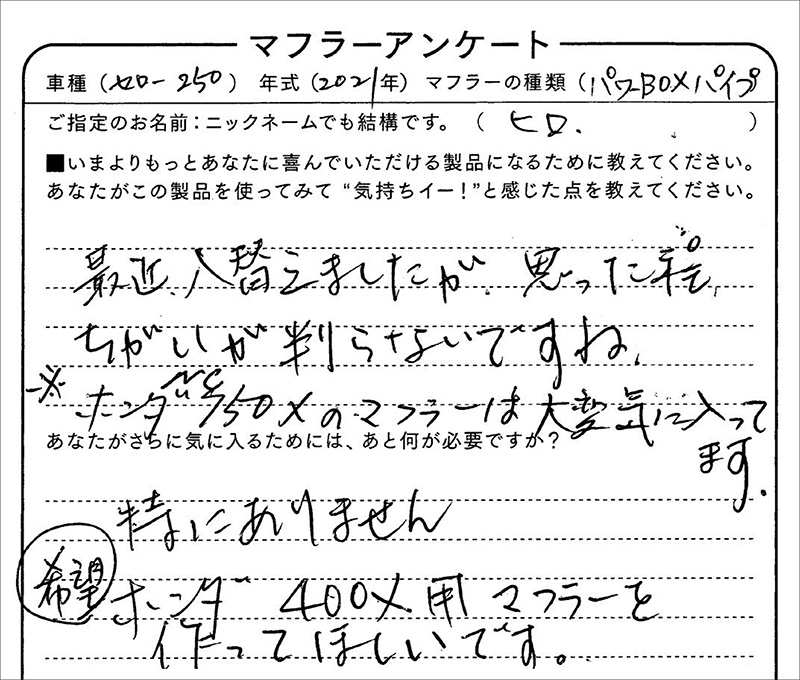 マフラーアンケート
車種（セロー250） 年式（2021年） マフラーの種類（パワーBOXパイプ
ご指定のお名前：ニックネームでも結構です。（ ヒロ. ）
■いまよりもっとあなたに喜んでいただける製品になるために教えてください。
あなたがこの製品を使ってみて“気持ちイー！”と感じた点を教えてください。
最近、入替えましたが、思った程、
ちがいが判らないですね、
※ホンダNC750Xのマフラーは大変気に入って
ます。
あなたがさらに気に入るためには、あと何が必要ですか？
特にありません
希望 ホンダ 400X用マフラーを
作ってほしいです。